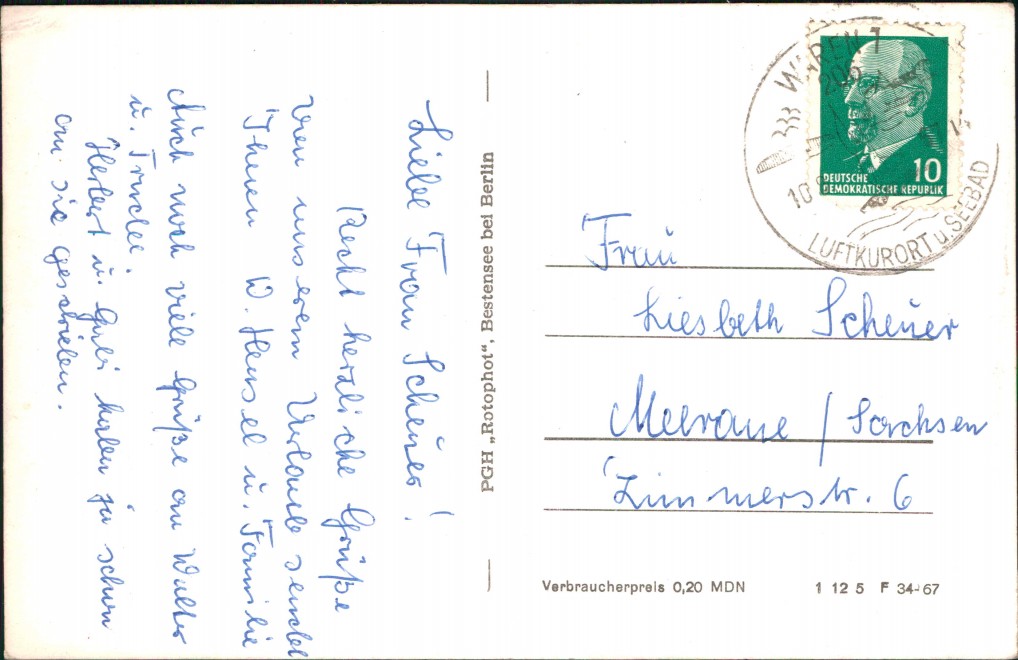 Liebe Frau Scheuer!
Recht herzliche Grüße
von unserem Urlaub sendet
Ihnen W. Hensel u. Familie
Auch noch viele Grüße an Walter
u. Trudel.
Herbert u. Gabi haben ja schon
an Sie geschrieben.
PGH „Rotophot“, Bestensee bei Berlin
WAREN 1
206
10
14
LUFTKURORT u. SEEBAD
10
DEUTSCHE
DEMOKRATISCHE REPUBLIK
Frau
Liesbeth Scheuer
Meerane / Sachsen
Zimmerstr. 6
Verbraucherpreis 0,20 MDN 1 12 5 F 34-67